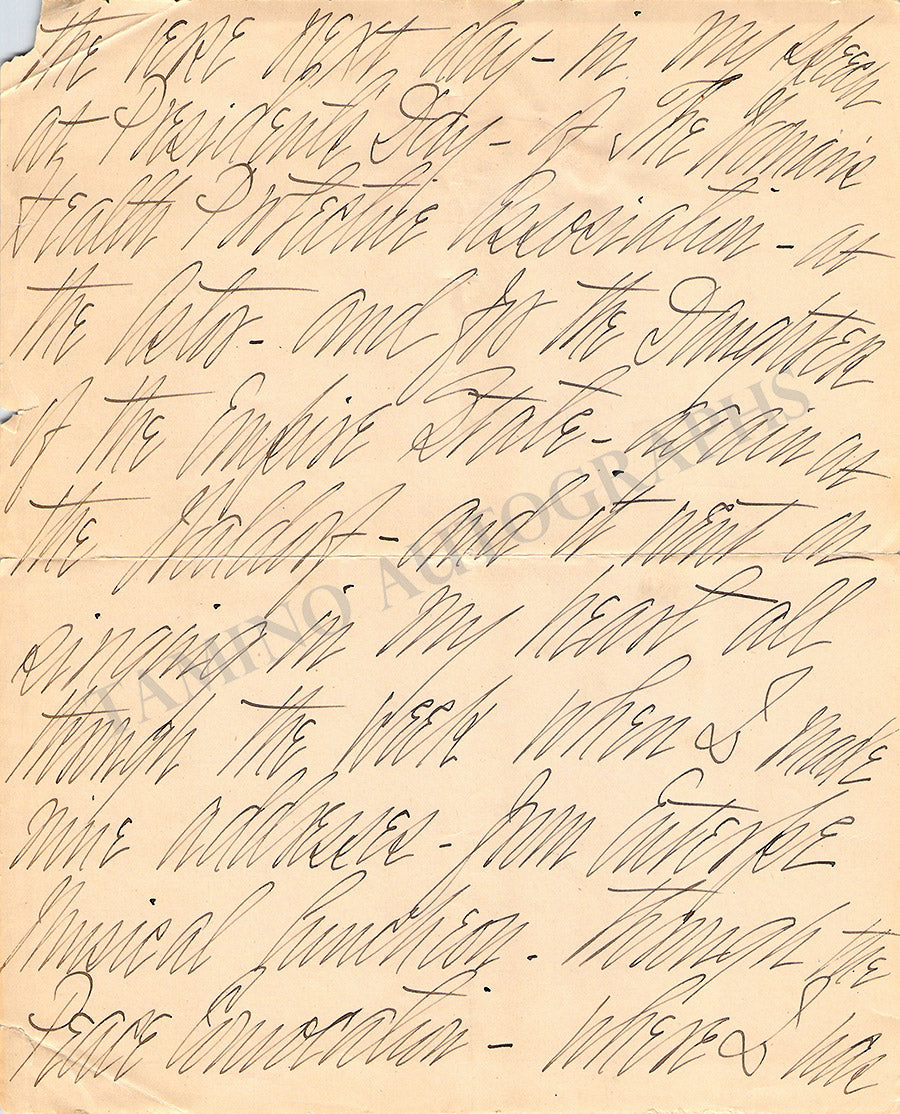 the very next day - in my speech
at Presidents' Day - of The Woman's
Health Protective Association - at
the Astor - and for the Daughters
of the Empire State - again at
the Waldorf - and it went on
singing in my heart all
through the week when I made
nine addresses - from Euterpe
Musical Luncheon - through the
Peace Convocation - where I was
TAMINO AUTOGRAPHS